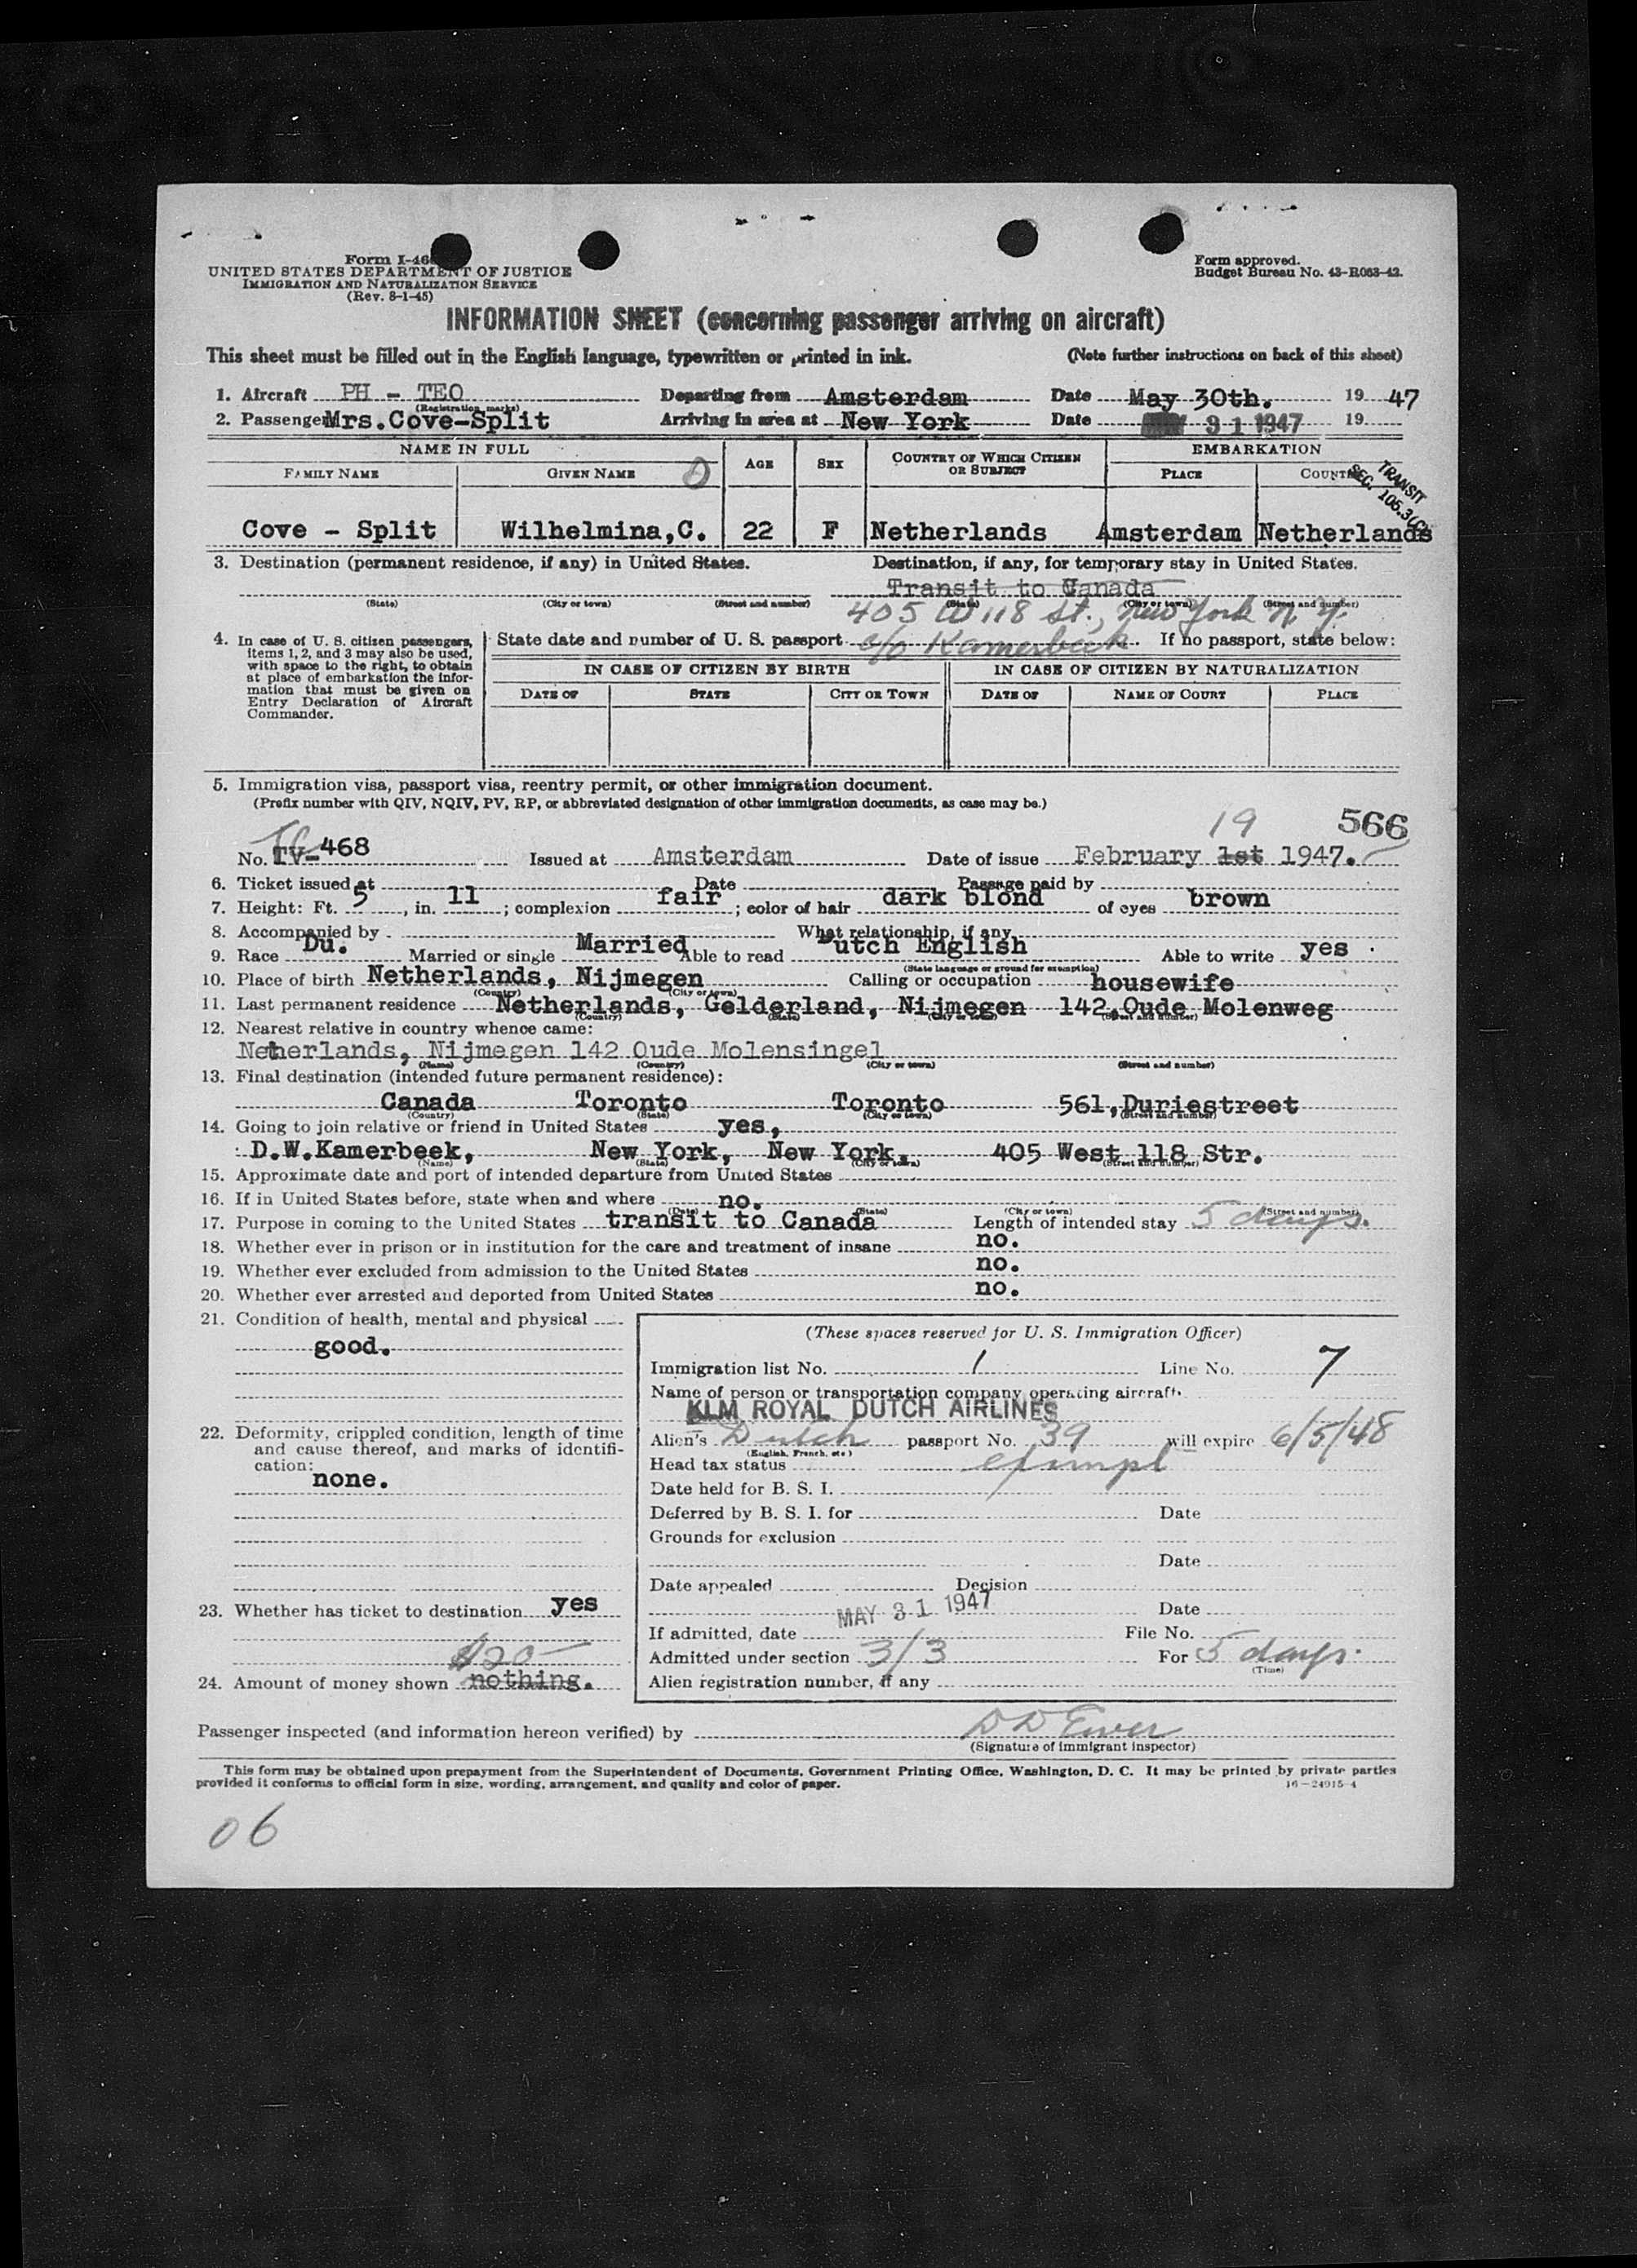 Form I-466
UNITED STATES DEPARTMENT OF JUSTICE
IMMIGRATION AND NATURALIZATION SERVICE
(Rev. 8-1-45)
Form approved.
Budget Bureau No. 43-R063-42.
INFORMATION SHEET (concerning passenger arriving on aircraft)
This sheet must be filled out in the English language, typewritten or printed in ink. (Note further instructions on back of this sheet)
1. Aircraft PH - TEO Departing from Amsterdam Date May 30th. 19 47
(Registration marks)
2. Passenger Mrs.Cove-Split Arriving in area at New York Date MAY 31 1947 19
NAME IN FULL AGE SEX COUNTRY OF WHICH CITIZEN OR SUBJECT EMBARKATION
FAMILY NAME GIVEN NAME PLACE COUNTRY
TRANSIT
SEC. 105.3(C)
Cove - Split Wilhelmina,C. 22 F Netherlands Amsterdam Netherlands
3. Destination (permanent residence, if any) in United States. Destination, if any, for temporary stay in United States.
Transit to Canada
(State) (City or town) (Street and number) (State) (City or town) (Street and number)
405 W 118 St., New York N.Y.
4. In case of U. S. citizen passengers, items 1, 2, and 3 may also be used, with space to the right, to obtain at place of embarkation the information that must be given on Entry Declaration of Aircraft Commander.
State date and number of U. S. passport c/o Kamerbeek If no passport, state below:
IN CASE OF CITIZEN BY BIRTH IN CASE OF CITIZEN BY NATURALIZATION
DATE OF STATE CITY OR TOWN DATE OF NAME OF COURT PLACE
5. Immigration visa, passport visa, reentry permit, or other immigration document.
(Prefix number with QIV, NQIV, PV, RP, or abbreviated designation of other immigration documents, as case may be.)
19 566
No. TV-468 Issued at Amsterdam Date of issue February 1st 1947.
6. Ticket issued at Date Passage paid by
7. Height: Ft. 5, in. 11; complexion fair; color of hair dark blond of eyes brown
8. Accompanied by What relationship, if any
9. Race Du. Married or single Married Able to read Dutch English Able to write yes
(State language or ground for exemption)
10. Place of birth Netherlands, Nijmegen Calling or occupation housewife
(Country) (City or town)
11. Last permanent residence Netherlands, Gelderland, Nijmegen 142,Oude Molenweg
(Country) (State) (City or town) (Street and number)
12. Nearest relative in country whence came:
Netherlands, Nijmegen 142 Oude Molensingel
(Name) (Country) (City or town) (Street and number)
13. Final destination (intended future permanent residence):
Canada Toronto Toronto 561,Duriestreet
(Country) (State) (City or town) (Street and number)
14. Going to join relative or friend in United States yes,
D.W.Kamerbeek, New York, New York, 405 West 118 Str.
(Name) (State) (City or town) (Street and number)
15. Approximate date and port of intended departure from United States
16. If in United States before, state when and where no.
(Date) (State) (City or town) (Street and number)
17. Purpose in coming to the United States transit to Canada Length of intended stay 5 days.
18. Whether ever in prison or in institution for the care and treatment of insane no.
19. Whether ever excluded from admission to the United States no.
20. Whether ever arrested and deported from United States no.
21. Condition of health, mental and physical
good.
22. Deformity, crippled condition, length of time and cause thereof, and marks of identification:
none.
23. Whether has ticket to destination yes
$20-
24. Amount of money shown nothing.
(These spaces reserved for U. S. Immigration Officer)
Immigration list No. 1 Line No. 7
Name of person or transportation company operating aircraft
KLM ROYAL DUTCH AIRLINES
Alien's Dutch passport No. 39 will expire 6/5/48
(English, French, etc.)
Head tax status exempt
Date held for B. S. I.
Deferred by B. S. I. for Date
Grounds for exclusion
Date
Date appealed Decision
MAY 31 1947 Date
If admitted, date File No.
Admitted under section 3/3 For 5 days.
(Time)
Alien registration number, if any
Passenger inspected (and information hereon verified) by
(Signature of immigrant inspector)
This form may be obtained upon prepayment from the Superintendent of Documents, Government Printing Office, Washington, D. C. It may be printed by private parties
provided it conforms to official form in size, wording, arrangement, and quality and color of paper. 16-24915-4
06